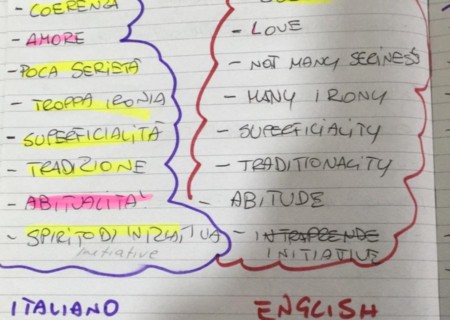 - COERENZA
- AMORE
- POCA SERIETÀ
- TROPPA IRONIA
- SUPERFICIALITÀ
- TRADIZIONE
- ABITUALITA'
- SPIRITO DI INIZIATIVA
initiative
ITALIANO
- LOVE
- NOT MANY SERINESS
- MANY IRONY
- SUPERFICIALITY
- TRADITIONALITY
- ABITUDE
- INTRAPRENDE
INITIATIVE
ENGLISH